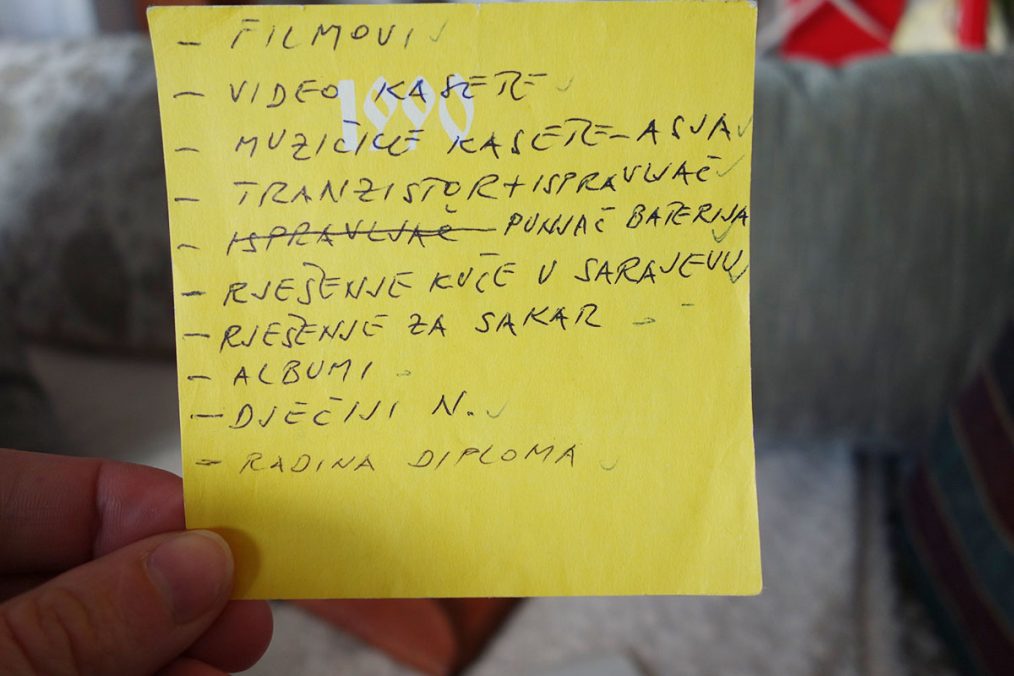 - FILMOVI
- VIDEO KASETE
1990
- MUZIČKE KASETE - ASJA
- TRANZISTOR + ISPRAVLJAČ
- ISPRAVLJAČ - PUNJAČ BATERIJA
- RJEŠENJE KUČE U SARAJEVU
- RJEŠENJE ZA SAKAR
- ALBUMI
- DJEČIJI N.
- RADINA DIPLOMA